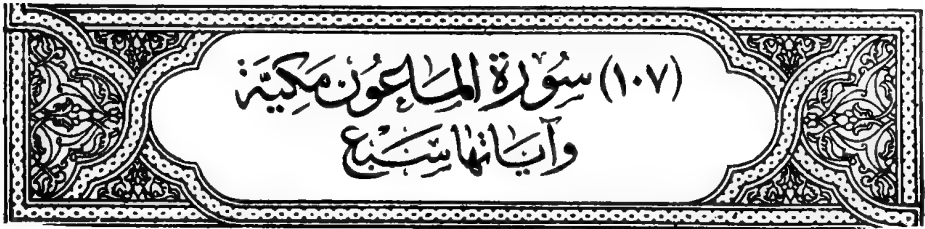 (١٠٧) سُوْرَةُ المَاعُونِ مَكِيَّة
وَآيَاتُهَا سَبْع